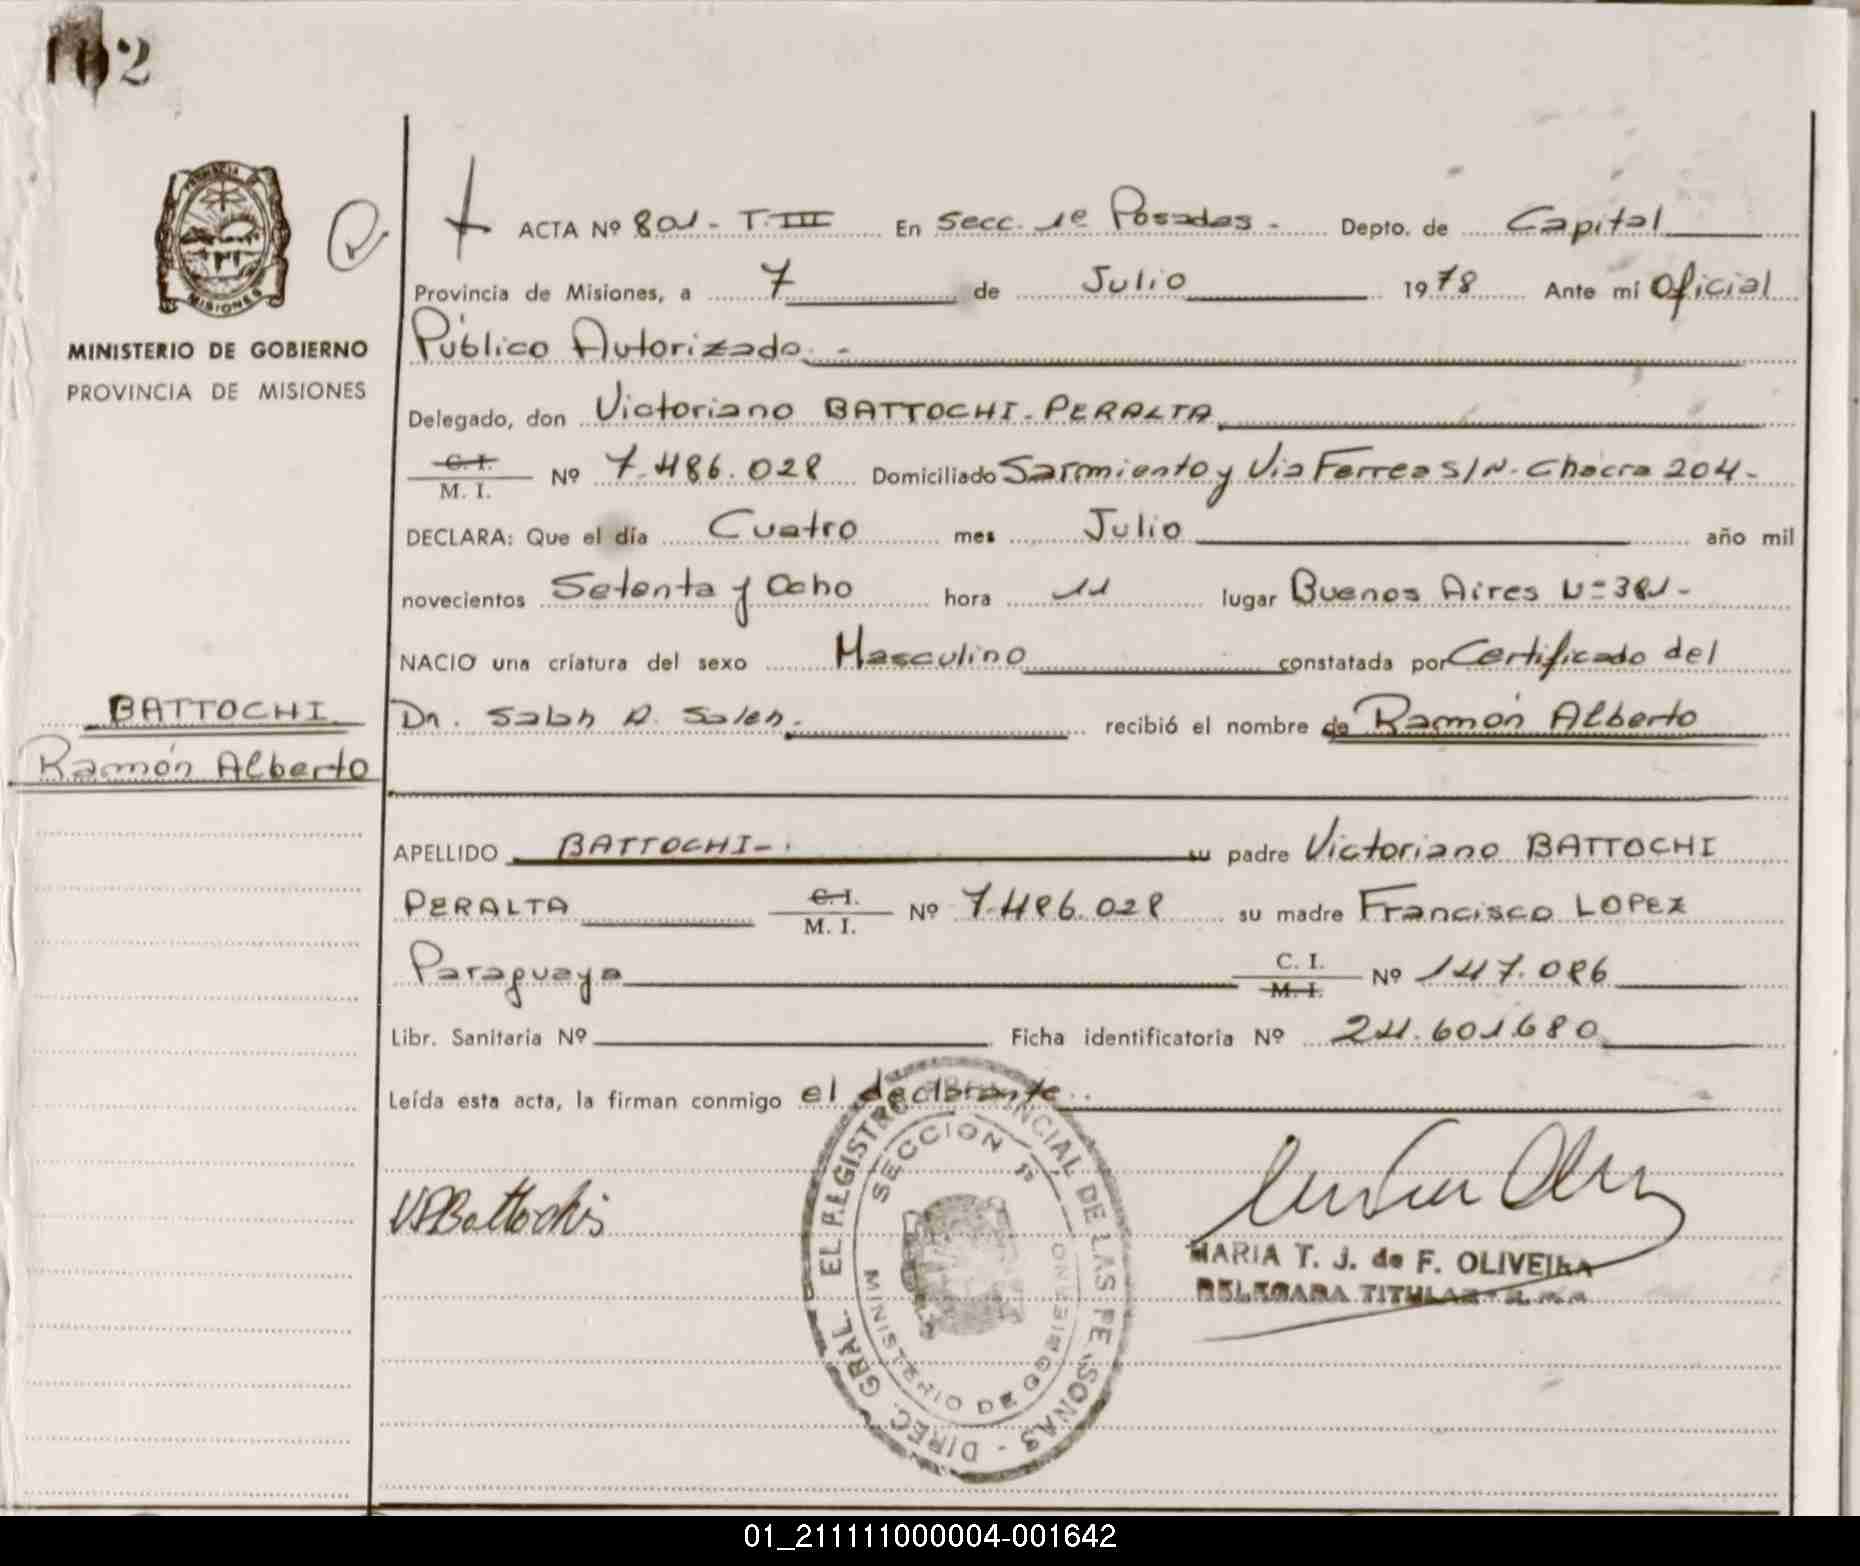 102
PROVINCIA DE
MISIONES
MINISTERIO DE GOBIERNO
PROVINCIA DE MISIONES
BATTOCHI
Ramón Alberto
ACTA Nº 801 - T. III En Secc. 1ª Posadas - Depto. de Capital
Provincia de Misiones, a 7 de Julio 1978 Ante mi Oficial
Público Autorizado. -
Delegado, don Victoriano BATTOCHI - PERALTA
C. I. / M. I. Nº 7.486.028 Domiciliado Sarmiento y Via Ferrea S/N - Chacra 204 -
DECLARA: Que el día Cuatro mes Julio año mil
novecientos Setenta y Ocho hora 11 lugar Buenos Aires Nº 381 -
NACIO una criatura del sexo Masculino constatada por Certificado del
Dr. Salah A. Saleh. recibió el nombre de Ramón Alberto
APELLIDO BATTOCHI - . su padre Victoriano BATTOCHI
PERALTA C. I. / M. I. Nº 7.486.028 su madre Francisca LOPEZ
Paraguaya C. I. / M. I. Nº 147.086
Libr. Sanitaria Nº Ficha identificatoria Nº 24.601680
Leída esta acta, la firman conmigo el declarante.
VPBattochi
DIREC. GRAL. EL REGISTRO PROVINCIAL DE LAS PERSONAS -
SECCION 1ª
MINISTERIO DE GOBIERNO
MARIA T. J. de F. OLIVEIRA
DELEGADA TITULAR
01_211111000004-001642